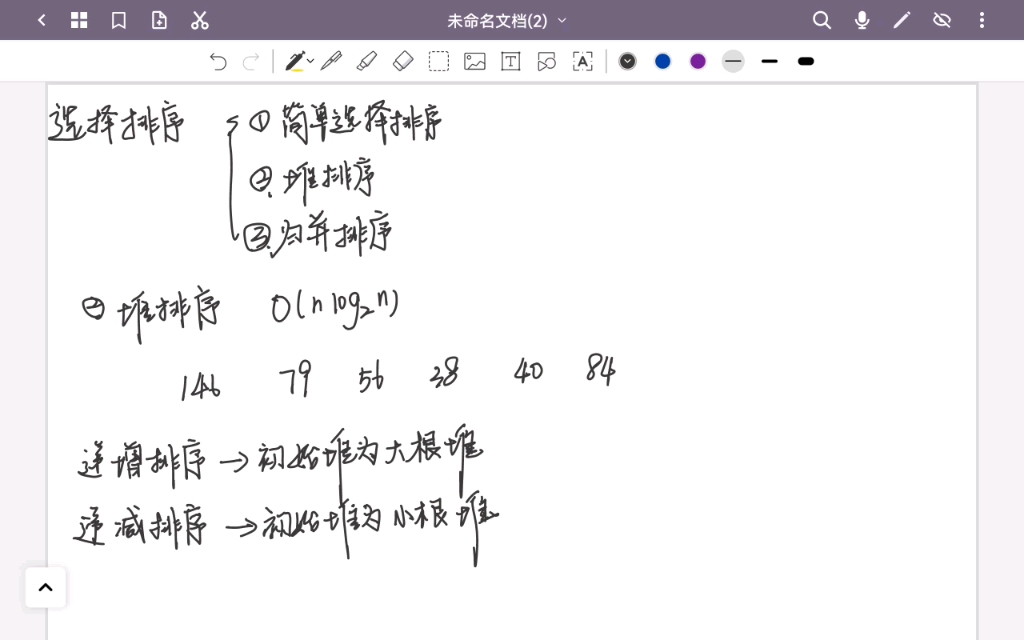 未命名文档(2)
选择排序 ① 简单选择排序
② 堆排序
③ 归并排序
② 堆排序 O(n log₂n)
146 79 56 38 40 84
递增排序 → 初始堆为大根堆
递减排序 → 初始堆为小根堆